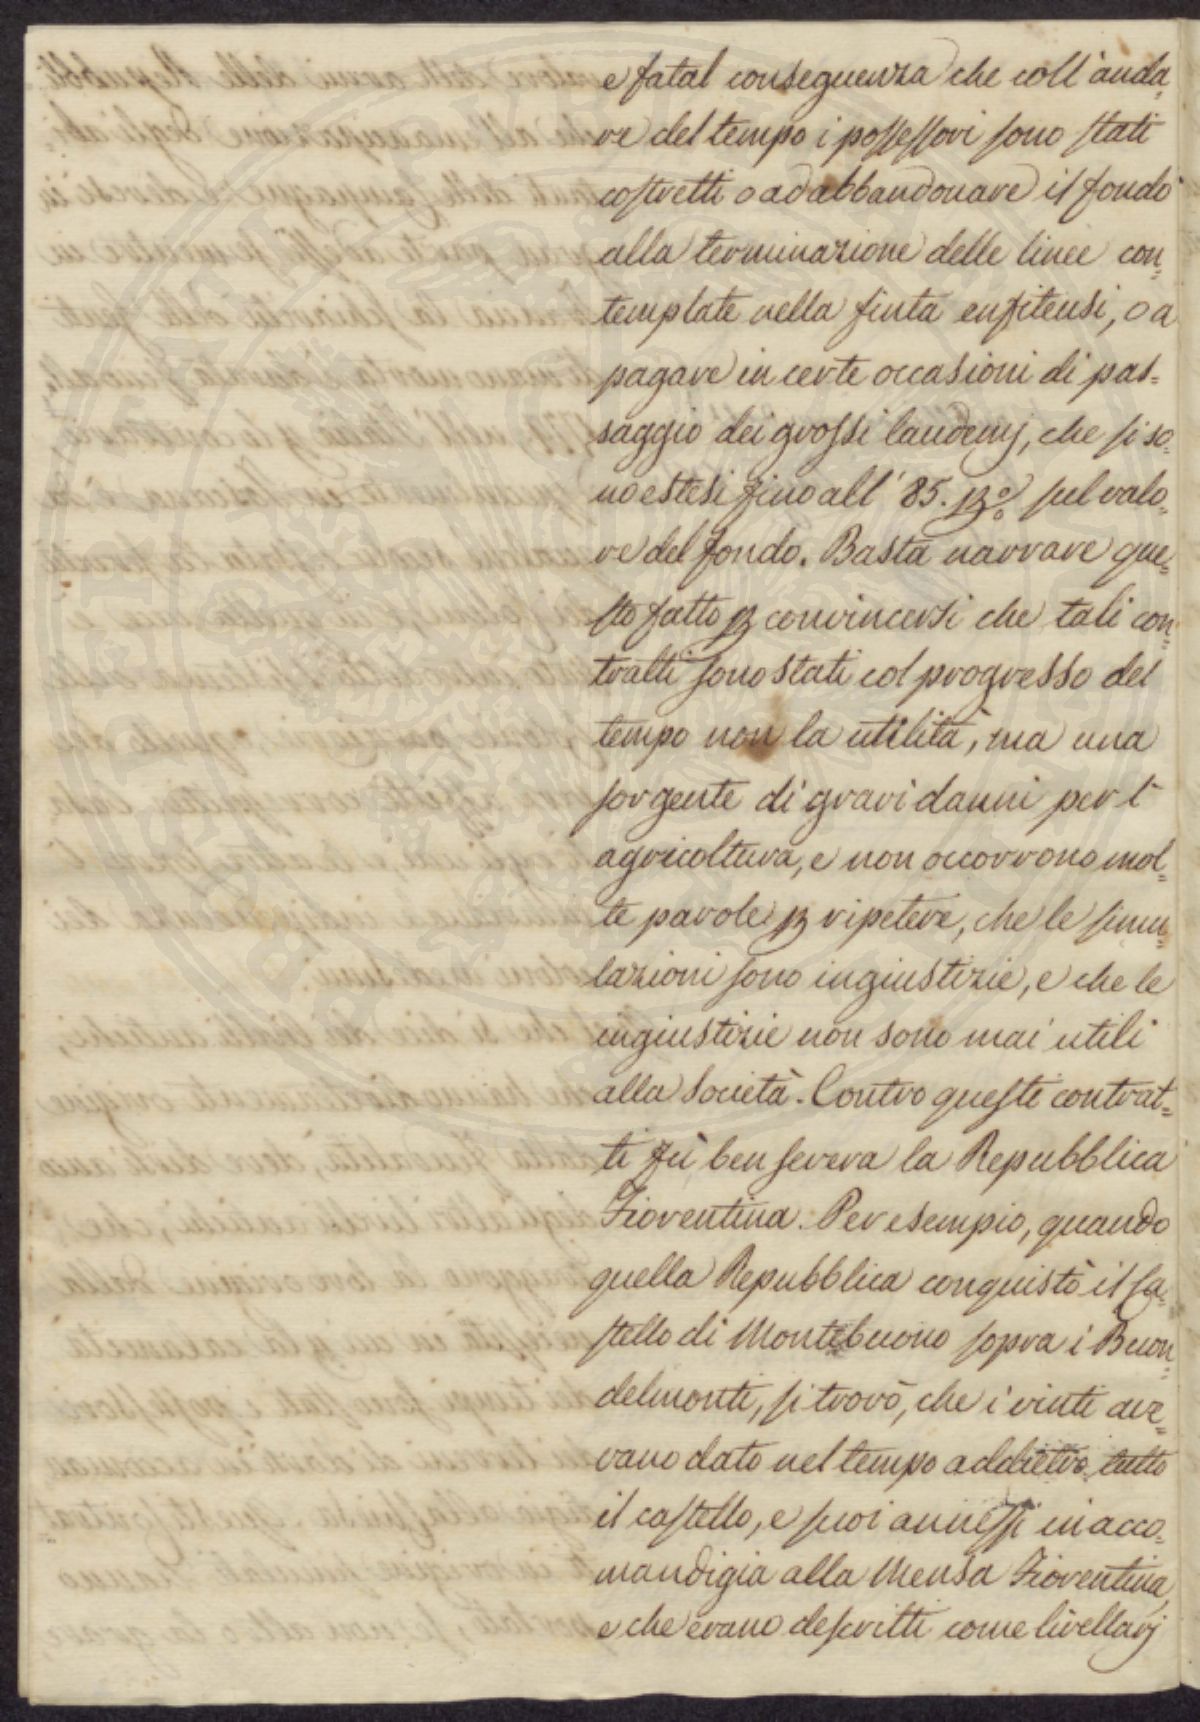 e fatal conseguenza che coll'anda=
re del tempo i possessori sono stati
costretti o ad abbandonare il fondo
alla terminazione delle linee con=
template nella finta enfiteusi, o a
pagare in certe occasioni di pas=
saggio dei grossi laudemj, che si so=
no estesi fino all' 85. p%. sul valo=
re del fondo. Basta narrare que=
sto fatto p convincersi che tali con=
tratti sono stati col progresso del
tempo non la utilità, ma una
sorgente di gravi danni per l'
agricoltura, e non occorrono mol=
te parole p ripetere, che le simu=
lazioni sono ingiustizie, e che le
ingiustizie non sono mai utili
alla Società. Contro queste contrat=
ti fù ben severa la Repubblica
Fiorentina. Per esempio, quando
quella Repubblica conquistò il Ca=
stello di Montebuono sopra i Buon=
delmonti, si trovò, che i vinti ave=
vano dato nel tempo addietro tutto
il castello, e suoi annessi in acco=
mandigia alla Mensa Fiorentina,
e che erano descritti come livellarj